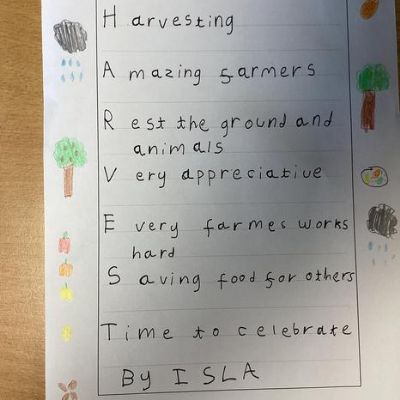 Harvesting
Amazing farmers
Rest the ground and
animals
Very appreciative
Every farmes works
hard
Saving food for others
Time to celebrate
By ISLA